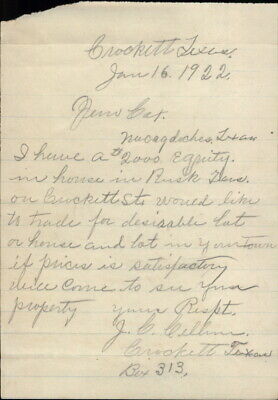 Crockett Texas.
Jan 16. 1922.
Nacogdoches, Texas
I have a $2000 Equity.
in house in Rusk Texs.
on Crockett Sts would like
to trade for desirable lot
or house and lot in your town
if prices is satisfactory
will come to see your
property your Respt.
J. C.
Crockett Texas
Box 313,